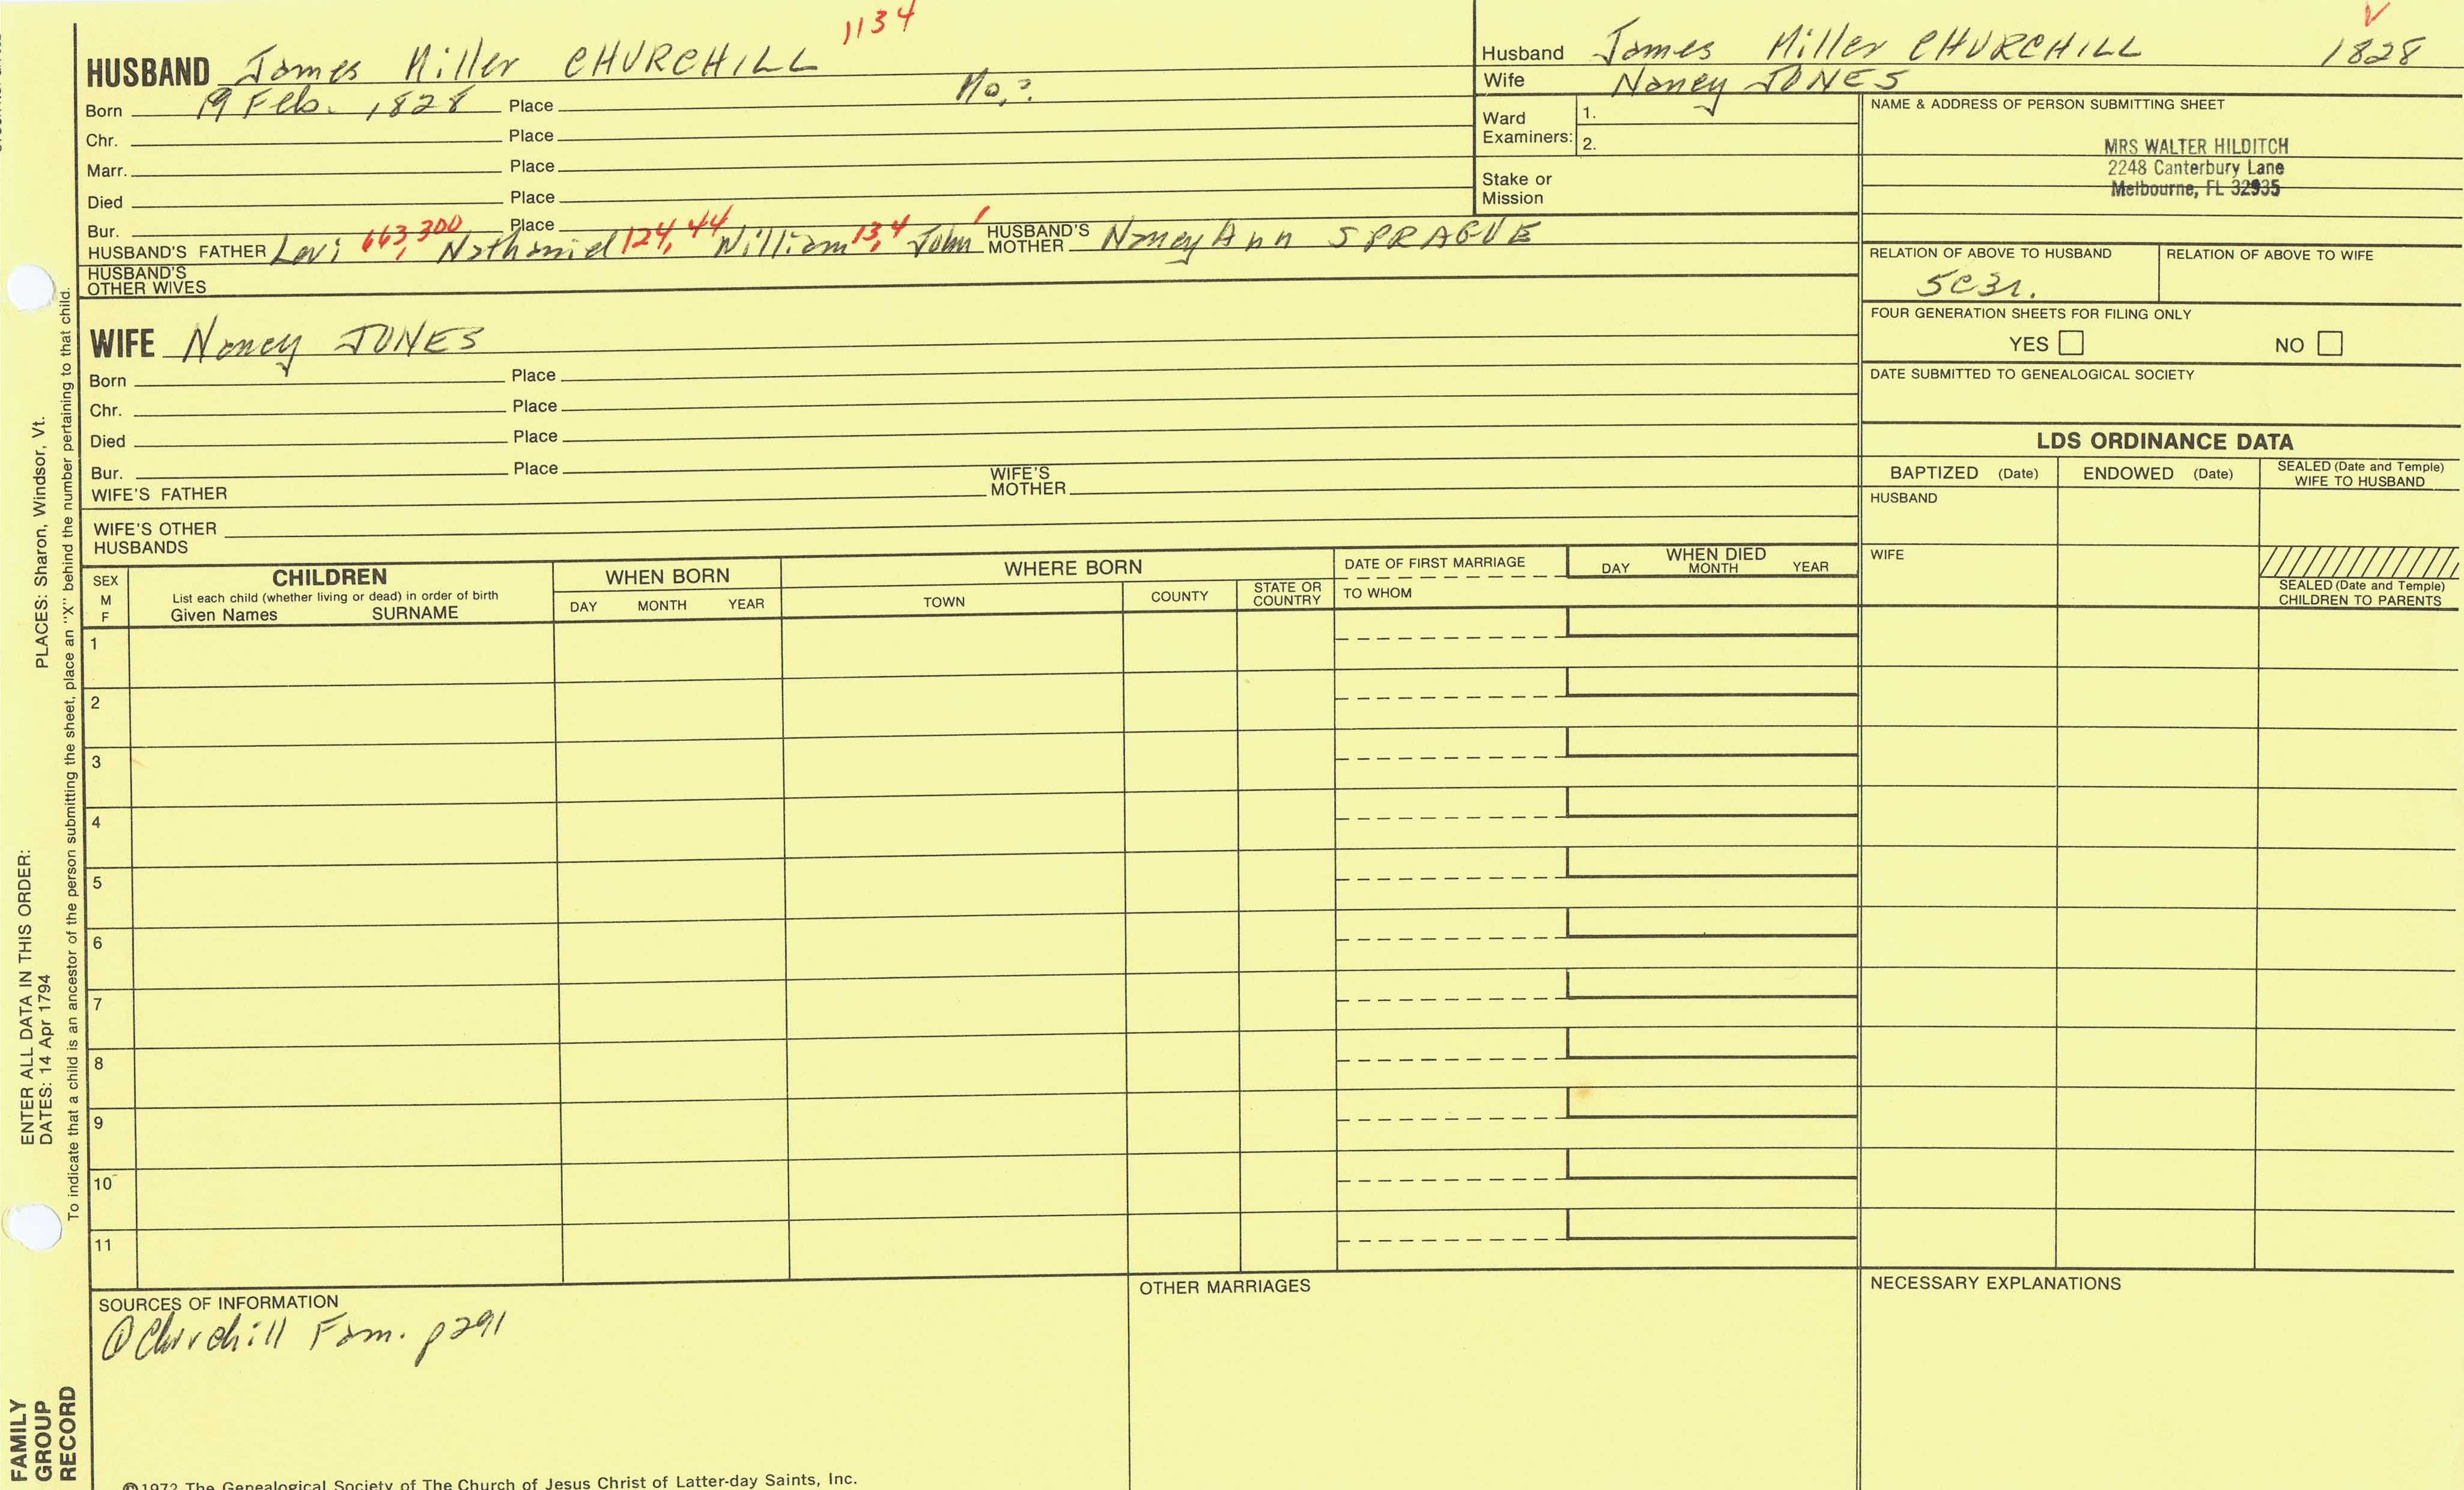 1134
HUSBAND James Miller CHURCHILL
Born 19 Feb. 1828 Place Mo.?
Chr. Place
Marr. Place
Died Place
Bur. Place
HUSBAND'S FATHER Levi 663, 300 Nathaniel 124, 44 William 13, 4 John 1 HUSBAND'S MOTHER Nancy Ann SPRAGUE
HUSBAND'S OTHER WIVES
WIFE Nancy JONES
Born Place
Chr. Place
Died Place
Bur. Place
WIFE'S FATHER WIFE'S MOTHER
WIFE'S OTHER HUSBANDS
Husband James Miller CHURCHILL 1828
Wife Nancy JONES
Ward Examiners: 1.
2.
Stake or Mission
NAME & ADDRESS OF PERSON SUBMITTING SHEET
MRS WALTER HILDITCH
2248 Canterbury Lane
Melbourne, FL 32935
RELATION OF ABOVE TO HUSBAND RELATION OF ABOVE TO WIFE
5C3r.
FOUR GENERATION SHEETS FOR FILING ONLY
YES NO
DATE SUBMITTED TO GENEALOGICAL SOCIETY
LDS ORDINANCE DATA
BAPTIZED (Date) ENDOWED (Date) SEALED (Date and Temple) WIFE TO HUSBAND
HUSBAND
WIFE
SEALED (Date and Temple) CHILDREN TO PARENTS
SEX M F
CHILDREN
List each child (whether living or dead) in order of birth
Given Names SURNAME
WHEN BORN
DAY MONTH YEAR
WHERE BORN
TOWN COUNTY STATE OR COUNTRY
DATE OF FIRST MARRIAGE
TO WHOM
WHEN DIED
DAY MONTH YEAR
1
2
3
4
5
6
7
8
9
10
11
SOURCES OF INFORMATION
① Churchill Fam. p291
OTHER MARRIAGES
NECESSARY EXPLANATIONS
©1972 The Genealogical Society of The Church of Jesus Christ of Latter-day Saints, Inc.
FAMILY GROUP RECORD
ENTER ALL DATA IN THIS ORDER:
DATES: 14 Apr 1794 PLACES: Sharon, Windsor, Vt.
To indicate that a child is an ancestor of the person submitting the sheet, place an "X" behind the number pertaining to that child.